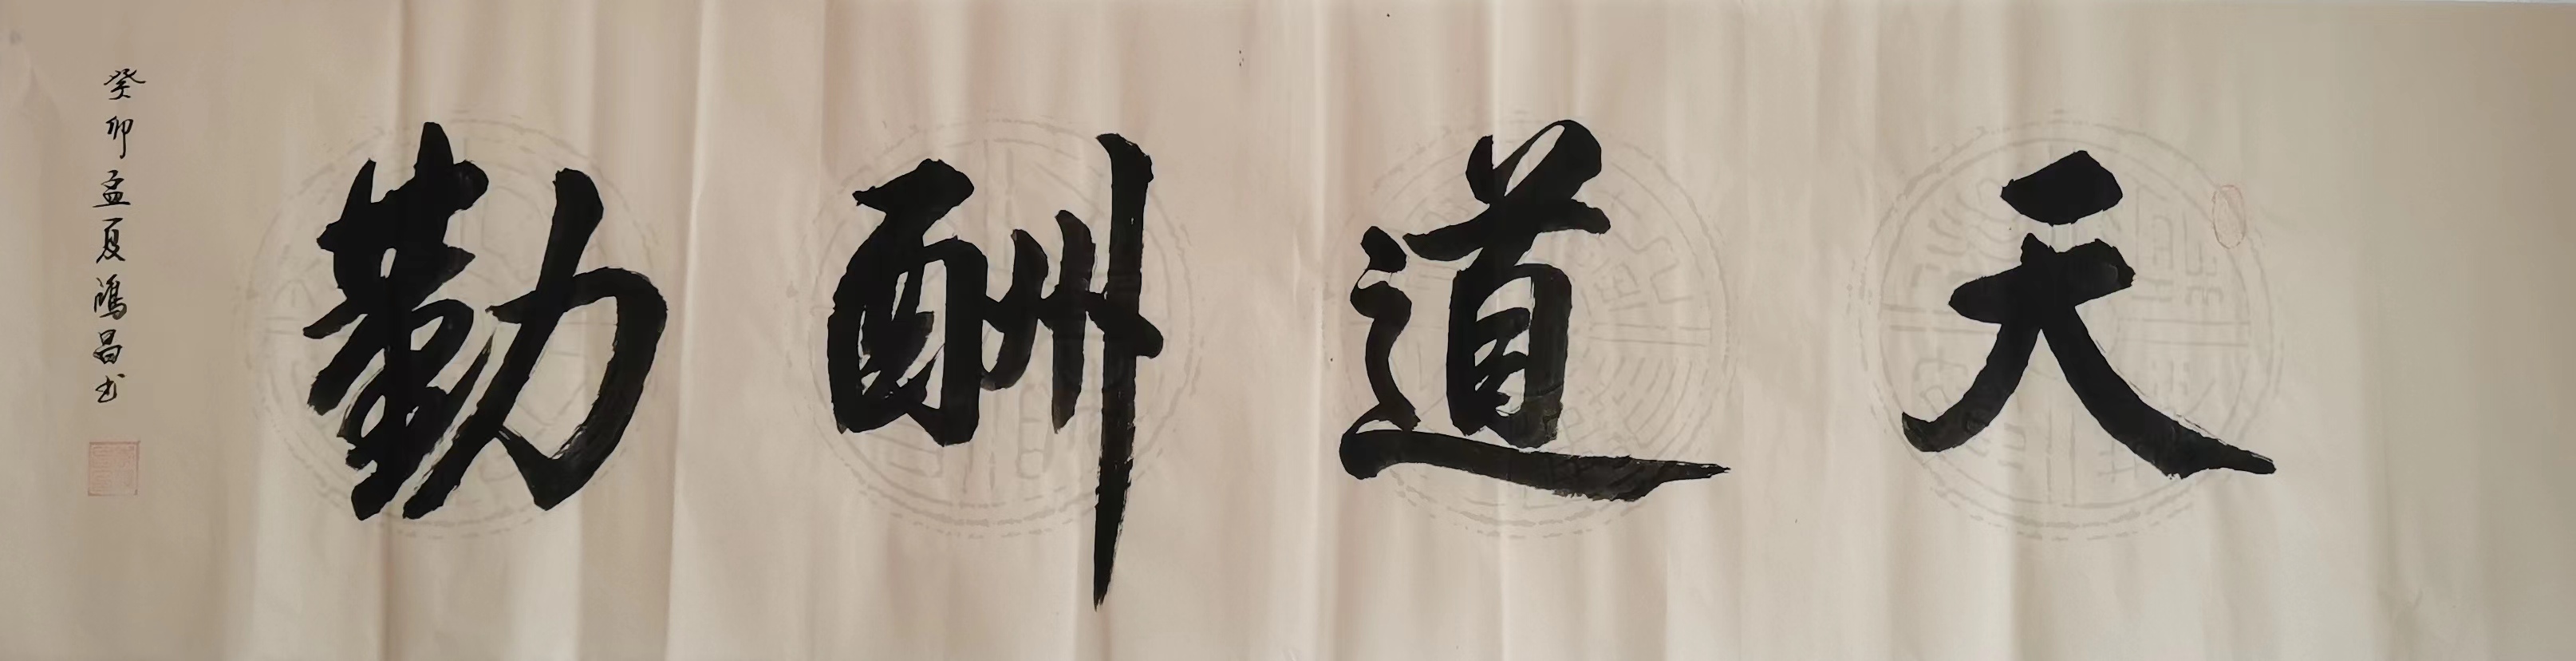 天道酬勤
癸卯孟夏鴻昌书